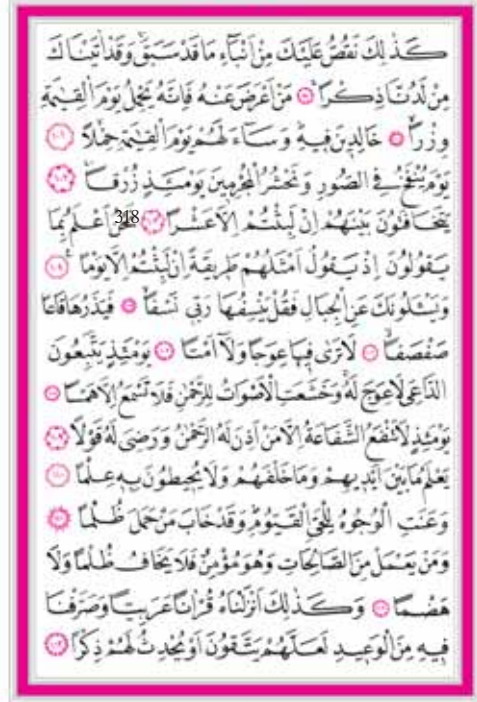 كَذٰلِكَ نَقُصُّ عَلَيْكَ مِنْ اَنْبَٓاءِ مَا قَدْ سَبَقَۚ وَقَدْ اٰتَيْنَاكَ
مِنْ لَدُنَّا ذِكْرًاۚ ﴿٩٩﴾ مَنْ اَعْرَضَ عَنْهُ فَاِنَّهُ يَحْمِلُ يَوْمَ الْقِيٰمَةِ
وِزْرًاۙ ﴿١٠٠﴾ خَالِدِينَ فِيهِۜ وَسَٓاءَ لَهُمْ يَوْمَ الْقِيٰمَةِ حِمْلًاۙ ﴿١٠١﴾
يَوْمَ يُنْفَخُ فِي الصُّورِ وَنَحْشُرُ الْمُجْرِمِينَ يَوْمَئِذٍ زُرْقًاۚ ﴿١٠٢﴾
يَتَخَافَتُونَ بَيْنَهُمْ اِنْ لَبِثْتُمْ اِلَّا عَشْرًا ﴿١٠٣﴾ 318 نَحْنُ اَعْلَمُ بِمَا
يَقُولُونَ اِذْ يَقُولُ اَمْثَلُهُمْ طَرِيقَةً اِنْ لَبِثْتُمْ اِلَّا يَوْمًا۟ ﴿١٠٤﴾
وَيَسْـَٔلُونَكَ عَنِ الْجِبَالِ فَقُلْ يَنْسِفُهَا رَبِّي نَسْفًاۙ ﴿١٠٥﴾ فَيَذَرُهَا قَاعًا
صَفْصَفًاۙ ﴿١٠٦﴾ لَا تَرٰى فِيهَا عِوَجًا وَلَٓا اَمْتًا ﴿١٠٧﴾ يَوْمَئِذٍ يَتَّبِعُونَ
الدَّاعِيَ لَا عِوَجَ لَهُۚ وَخَشَعَتِ الْاَصْوَاتُ لِلرَّحْمٰنِ فَلَا تَسْمَعُ اِلَّا هَمْسًا ﴿١٠٨﴾
يَوْمَئِذٍ لَا تَنْفَعُ الشَّفَاعَةُ اِلَّا مَنْ اَذِنَ لَهُ الرَّحْمٰنُ وَرَضِيَ لَهُ قَوْلًا ﴿١٠٩﴾
يَعْلَمُ مَا بَيْنَ اَيْدِيهِمْ وَمَا خَلْفَهُمْ وَلَا يُحِيطُونَ بِهِ عِلْمًا ﴿١١٠﴾
وَعَنَتِ الْوُجُوهُ لِلْحَيِّ الْقَيُّومِۜ وَقَدْ خَابَ مَنْ حَمَلَ ظُلْمًا ﴿١١١﴾
وَمَنْ يَعْمَلْ مِنَ الصَّالِحَاتِ وَهُوَ مُؤْمِنٌ فَلَا يَخَافُ ظُلْمًا وَلَا
هَضْمًا ﴿١١٢﴾ وَكَذٰلِكَ اَنْزَلْنَاهُ قُرْاٰنًا عَرَبِيًّا وَصَرَّفْنَا
فِيهِ مِنَ الْوَعِيدِ لَعَلَّهُمْ يَتَّقُونَ اَوْ يُحْدِثُ لَهُمْ ذِكْرًا ﴿١١٣﴾